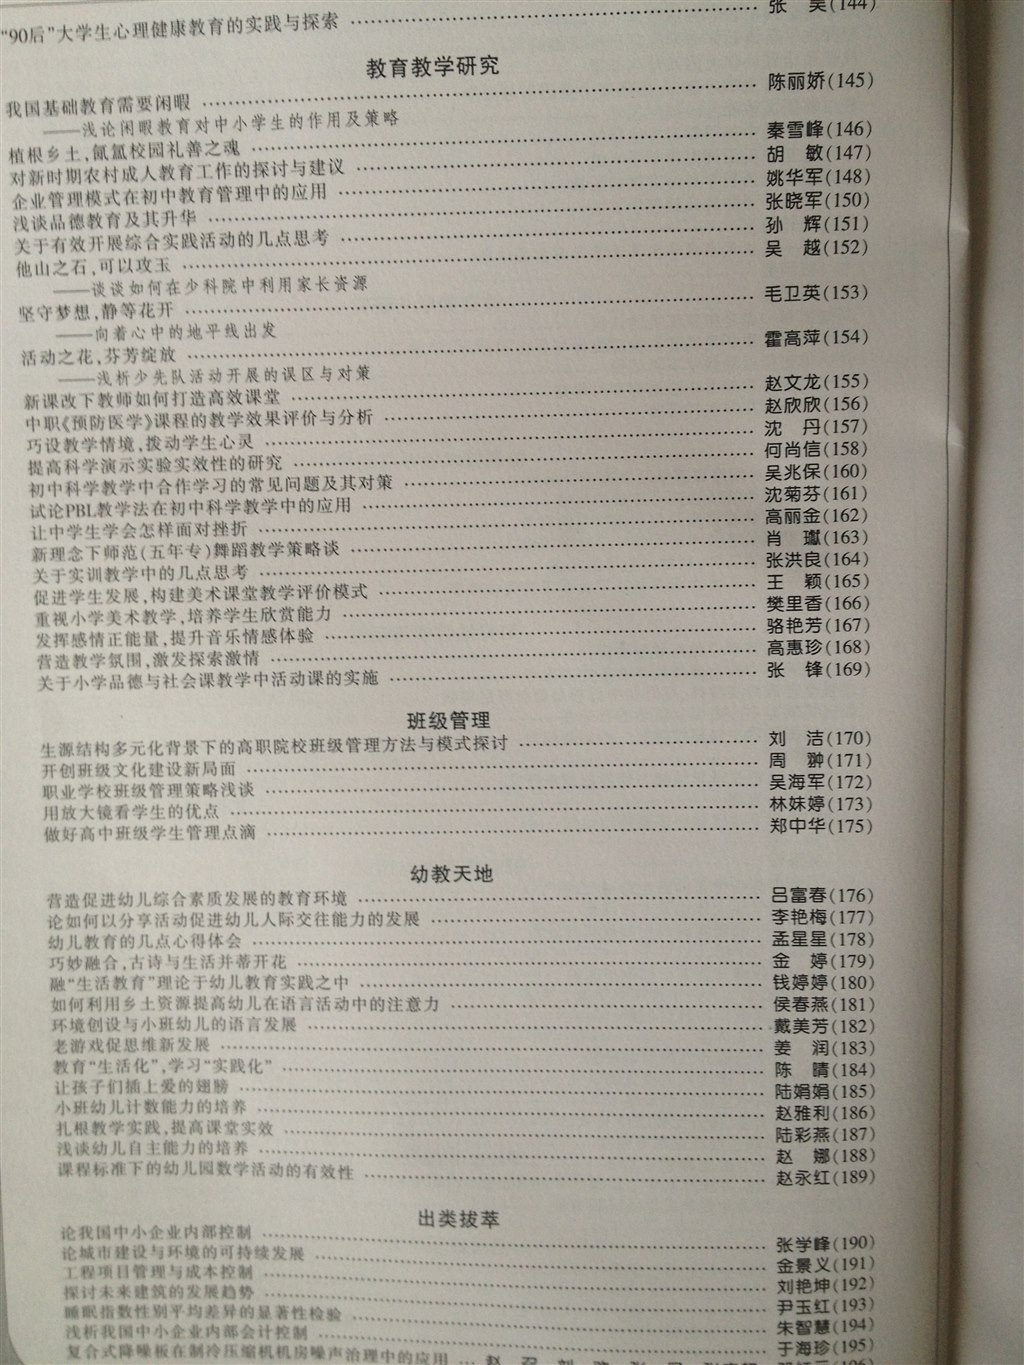 “90后”大学生心理健康教育的实践与探索 张 昊(144)
教育教学研究
我国基础教育需要闲暇 陈丽娇(145)
——浅论闲暇教育对中小学生的作用及策略
植根乡土,氤氲校园礼善之魂 秦雪峰(146)
对新时期农村成人教育工作的探讨与建议 胡 敏(147)
企业管理模式在初中教育管理中的应用 姚华军(148)
浅谈品德教育及其升华 张晓军(150)
关于有效开展综合实践活动的几点思考 孙 辉(151)
他山之石,可以攻玉 吴 越(152)
——谈谈如何在少科院中利用家长资源
坚守梦想,静等花开 毛卫英(153)
——向着心中的地平线出发
活动之花,芬芳绽放 霍高萍(154)
——浅析少先队活动开展的误区与对策
新课改下教师如何打造高效课堂 赵文龙(155)
中职《预防医学》课程的教学效果评价与分析 赵欣欣(156)
巧设教学情境,拨动学生心灵 沈 丹(157)
提高科学演示实验实效性的研究 何尚信(158)
初中科学教学中合作学习的常见问题及其对策 吴兆保(160)
试论PBL教学法在初中科学教学中的应用 沈菊芬(161)
让中学生学会怎样面对挫折 高丽金(162)
新理念下师范(五年专)舞蹈教学策略谈 肖 瓛(163)
关于实训教学中的几点思考 张洪良(164)
促进学生发展,构建美术课堂教学评价模式 王 颖(165)
重视小学美术教学,培养学生欣赏能力 樊里香(166)
发挥感情正能量,提升音乐情感体验 骆艳芳(167)
营造教学氛围,激发探索激情 高惠珍(168)
关于小学品德与社会课教学中活动课的实施 张 锋(169)
班级管理
生源结构多元化背景下的高职院校班级管理方法与模式探讨 刘 洁(170)
开创班级文化建设新局面 周 翀(171)
职业学校班级管理策略浅谈 吴海军(172)
用放大镜看学生的优点 林妹婷(173)
做好高中班级学生管理点滴 郑中华(175)
幼教天地
营造促进幼儿综合素质发展的教育环境 吕富春(176)
论如何以分享活动促进幼儿人际交往能力的发展 李艳梅(177)
幼儿教育的几点心得体会 孟星星(178)
巧妙融合,古诗与生活并蒂开花 金 婷(179)
融“生活教育”理论于幼儿教育实践之中 钱婷婷(180)
如何利用乡土资源提高幼儿在语言活动中的注意力 侯春燕(181)
环境创设与小班幼儿的语言发展 戴美芳(182)
老游戏促思维新发展 姜 润(183)
教育“生活化”,学习“实践化” 陈 晴(184)
让孩子们插上爱的翅膀 陆娟娟(185)
小班幼儿计数能力的培养 赵雅利(186)
扎根教学实践,提高课堂实效 陆彩燕(187)
浅谈幼儿自主能力的培养 赵 娜(188)
课程标准下的幼儿园数学活动的有效性 赵永红(189)
出类拔萃
论我国中小企业内部控制 张学峰(190)
论城市建设与环境的可持续发展 金景义(191)
工程项目管理与成本控制 刘艳坤(192)
探讨未来建筑的发展趋势 尹玉红(193)
睡眠指数性别平均差异的显著性检验 朱智慧(194)
浅析我国中小企业内部会计控制 于海珍(195)
复合式降噪板在制冷压缩机机房噪声治理中的应用